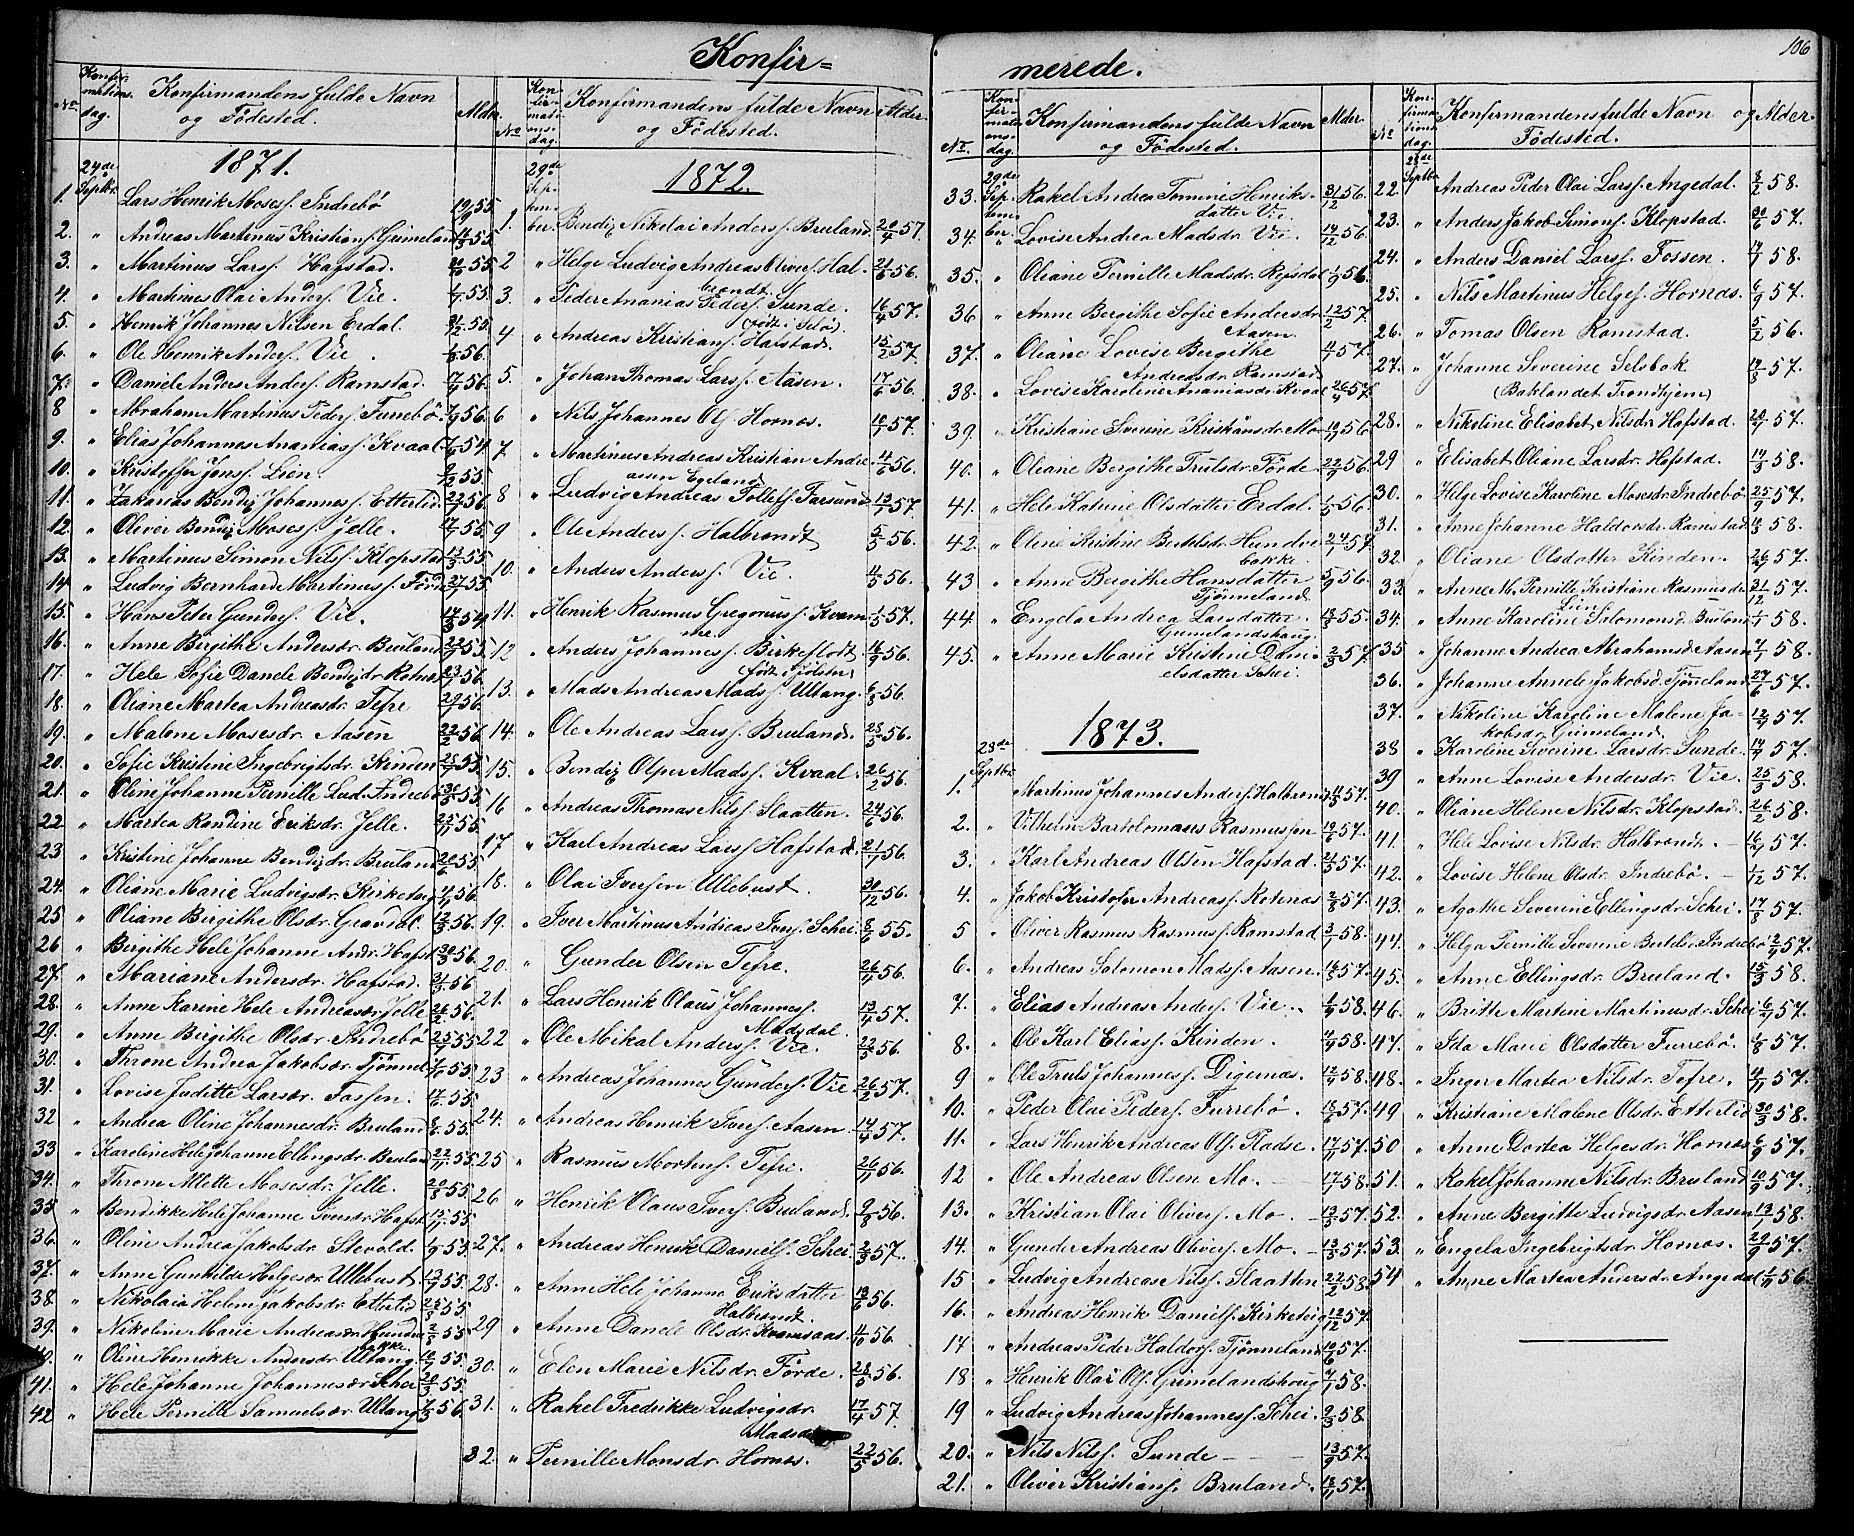 Konfir=
merede.
106
No.
Konfirmations. dag.
Konfirmandens fulde Navn
og Fødested.
Alder.
1871.
24de Septbr.
1. Lars Henrik Moses. Indrebø 19/9 55
2. " Andreas Martinus Kristians. Gimeland 55
3. " Martinus Larss. Hafstad. 55.
4. " Martinus Olai Anders. Vie. 55.
5. " Henrik Johannes Nilsen Erdal. 55
6. " Ole Henrik Anders. Vie. 56.
7. " Daniel Anders Anders. Ramstad. 56.
8 " Abraham Martinus Peders. Furrebø. 56.
9. " Elias Johannes Ananiass. Kvaal 54
10. " Kristoffer Jenss. Lien. 55.
11. " Zakarias Bendiz Johanness. Ettertid. 56.
12. " Oliver Bendiz Moses. Jelle. 55.
13. " Martinus Simon Nils. Klopstad 55
14 " Ludvig Bernhard Martinuss. Førde 55
15. " Hans Peter Gunders. Vie. 54
16. " Anne Birgithe Andersdr. Bruland 55.
17. " Hele Sofie Danele Bendizdr. Rotnes 56
18. " Oliane Martea Andreasdr. Tefre 56
19. " Malene Mosesdr. Aasen 22/2 56
20. " Sofie Kristine Ingebrigtsdr. Kinden 55
21. " Oline Johanne Pernille Lud. Indrebø 55
22 " Martea Randine Eriksdr. Jelle. 55
23 " Kristine Johanne Bendizdr. Bruland 55
24. " Oliane Marie Ludvigsdr. Kirketeig 56
25 " Oliane Birgithe Olsdr. Grandal. 56.
26 " Birgithe Hele Johanne Andr. Hafst. 56
27. " Mariane Andersdr. Hafstad. 56
28. " Anne Karine Hele Andreasdr. Jelle 56.
29. " Anne Birgithe Olsdr. Indrebø 55
30. " Throne Andrea Jakobsdr. Tjønnel. 55
31. " Lovise Juditte Larsdr. Fossen. 55
32 " Andrea Oline Johannesdr. Bruland 55.
33 " Karoline Hele Johanne Ellingsdr. Bruland 55.
34. " Throne Mette Mosesdr. Jelle. 55
35 " Bendikke Hele Johanne Iversdr. Hafst. 55
36. " Oline Andrea Jakobsdr. Stevold. 55
37. " Anne Gunhilde Helgesdr. Ullebust. 55.
38. " Nikolaia Helene Jakobsdr. Ettertid 55
39. " Nikoline Marie Andreasdr. Hunde
bakke. 55.
40. " Oline Henrikke Andersdr. Ullang. 55.
41. " Hele Johanne Johannesdr. Schei 55
42 " Hele Pernille Samuelsdr. Ullang 56.
No
Konfirmations. dag.
Konfirmandens fulde Navn
og Fødested.
Alder.
1872.
29de September.
1. Bendiz Nikolai Anderss. Bruland 20/4 57.
2 " Helge Ludvig Andreas Olivers. Hal-
brandt 21/6 56.
3. " Peder Ananias Peders. Sunde. 16/4 57.
4 " Andreas Kristians. Hafstad. 15/2 57.
5. " Johan Thomas Larss. Aasen. 17/6 56.
6 " Nils Johannes Ols. Hornes. 57.
7 " Martinus Andreas Kristian Andre
asen Egeland 56.
8 " Ludvig Andreas Tollefs. Farsund 57.
9 " Ole Anderss. Halbrandt 5/5 56.
10. " Anders Anderss. Vie. 56.
11. " Henrik Rasmus Gregoriuss. Kvam-
me 57.
12 " Anders Johanness. Birkeflot 16/9 56.
13. " Mads Andreas Madss. Ullang. 56.
14. " Ole Andreas Larss. Bruland. 56.
15. " Bendiz Olper Madss. Kvaal. 26/2 56.
16 " Andreas Thomas Nils. Slaatten. 24/6 56.
17 " Karl Andreas Larss. Hafstad. 21/1 56.
18. " Olai Iversen Ullebust. 30/12 56.
19. " Iver Martinus Andreas Ivers. Schei. 55.
20. " Gunder Olsen Tefre. 56.
21. " Lars Henrik Olaus Johannes.
Madsdal. 57.
22 " Ole Mikal Anderss. Vie. 22/5 56.
23 " Andreas Johannes Gunders. Vie 26/2 57.
24. " Andreas Henrik Ivers. Aasen 14/4 57.
25 " Rasmus Mortens. Tefre. 56.
26 " Henrik Olaus Ivers. Bruland. 56.
27. " Andreas Henrik Daniels. Schei 57.
28. " Anne Hele Johanne Eriksdatter
Halbrandt. 56.
29 " Anne Danele Olsdr. Kvamsaas. 56.
30. " Elen Marie Nilsdr. Førde. 56.
31. " Rakel Fredrikke Ludvigsdr.
Madsdal 17/4 57.
32. " Pernille Monsdr. Hornes. 22/5 56.
No.
Konfirmations. dag.
Konfirmandens fulde Navn
og Fødested.
Alder.
29de September.
33. Rakel Andrea Tomine Henriks-
datter Vie. 31/12 56.
34. " Lovise Andrea Madsdr. Vie. 56.
35. " Oliane Pernille Madsdr. Reisdal 56.
36 " Anne Bergithe Sofie Andersdr.
Aasen 12/2 57.
37. " Oliane Lovise Bergithe
Andreasdr. Ramstad 57.
38. " Lovise Karoline Ananiasdr. Kvaal 57.
39. " Kristiane Severine Kristiansdr. Mo 56
40. " Oliane Bergithe Trulsdr. Førde 56.
41. " Hele Katrine Olsdatter Erdal. 56.
42. " Oline Kristine Bertelsdr. Hunde
bakke. 57
43 " Anne Bergithe Hansdatter
Tjønneland. 56.
44 " Engela Andrea Larsdatter
Gimelandshaug. 55.
45. " Anne Marie Kristine Dani-
elsdatter Schei. 57.
1873.
28de Septbr.
1. Martinus Johannes Anders. Halbrandt 57.
2. " Vilhelm Bartolomæus Rasmussen 57.
3. " Karl Andreas Olsen Hafstad. 57.
4. " Jakob Kristofer Andreas. Rotenes 57.
5 " Oliver Rasmus Rasmus. Ramstad 58.
6. " Andreas Solomon Mads. Aasen. 57.
7. " Elias Andreas Anders. Vie. 58.
8. " Ole Karl Elias. Kinden. 58.
9 " Ole Truls Johannes. Digernæs. 58.
10. " Peder Olai Peders. Furrebø. 57.
11. " Lars Henrik Andreas Ols. Fladse. 57.
12 " Ole Andreas Olsen Mo. 58.
13. " Kristian Olai Olivers. Mo 57.
14. " Gunder Andreas Olivers. Mo 57.
15 " Ludvig Andreas Nils. Slaatten 22/2 58.
16. " Andreas Henrik Daniels. Kirketeig 57.
17 " Andreas Peder Haldors. Tjønneland 57.
18 " Henrik Olai Ols. Gimelandshaug 58.
19 " Ludvig Andreas Johanness. Schei. 58.
20. " Nils Nils. Sunde 57.
21. " Oliver Kristians. Bruland. 57.
No
Konfirmationsdag.
Konfirmandens fulde Navn og
Fødested.
Alder.
28de Septbr.
22. Andreas Peder Olai Larss. Angedal. 8/2 58.
23. " Anders Jakob Simons. Klopstad. 57.
24. " Anders Daniel Larss. Fossen. 58.
25. " Nils Martinus Helges. Hornæs. 6/9 57.
26. " Tomas Olsen Ramstad. 5/2 56.
27. " Johanne Severine Selsbak
(Baklandet Trondhjem) 57.
28. " Nikoline Elisabet Nilsdr. Hafstad. 57.
29 " Elisabet Oliane Larsdr. Hafstad. 58.
30. " Helge Lovise Karoline Mosesdr. Indrebø 25/9 57.
31. " Anne Johanne Haldorsdr. Ramstad 58.
32. " Oliane Olsdatter Kinden. 57.
33. " Anne M. Pernille Kristiane Rasmusdr.
Lien 31/12 57.
34. " Anne Karoline Salomonsd. Bruland 58.
35 " Johanne Andrea Abrahamsd. Aasen 58.
36. " Johanne Annele Jakobsd. Tjønneland 27/6 57.
37. " Nikoline Karoline Malene Ja-
kobsdr. Gimeland. 57.
38 " Karoline Severine Larsdr. Sunde. 57.
39 " Anne Lovise Andersdr. Vie. 25/3 58.
40. " Oliane Helene Nilsdr. Klopstad. 26/2 58.
41. " Hele Lovise Nilsdr. Halbrandt. 57.
42. " Lovise Helene Olsdr. Indrebø. 57.
43. " Agathe Severine Ellingsdr. Schei. 17/8 57.
44. " Helga Pernille Severine Bertelsd. Indrebø 57.
45. " Anne Ellingsdr. Bruland. 15/3 58.
46. " Britte Martine Martinusdr. Schei 57.
47. " Ida Marie Olsdatter Furrebø. 57.
48. " Inger Martea Nilsdr. Tefre. 57.
49 " Kristiane Malene Olsdr. Ettertid 30/3 58.
50 " Anne Dortea Helgesdr. Hornæs 6/9 57.
51. " Rakel Johanne Nilsdr. Bruland 10/9 57.
52. " Anne Bergitte Ludvigsdr. Aasen 13/1 58.
53. " Engela Ingebrigtsdr. Hornæs. 57.
54 " Anne Martea Andersdr. Angedal 56.